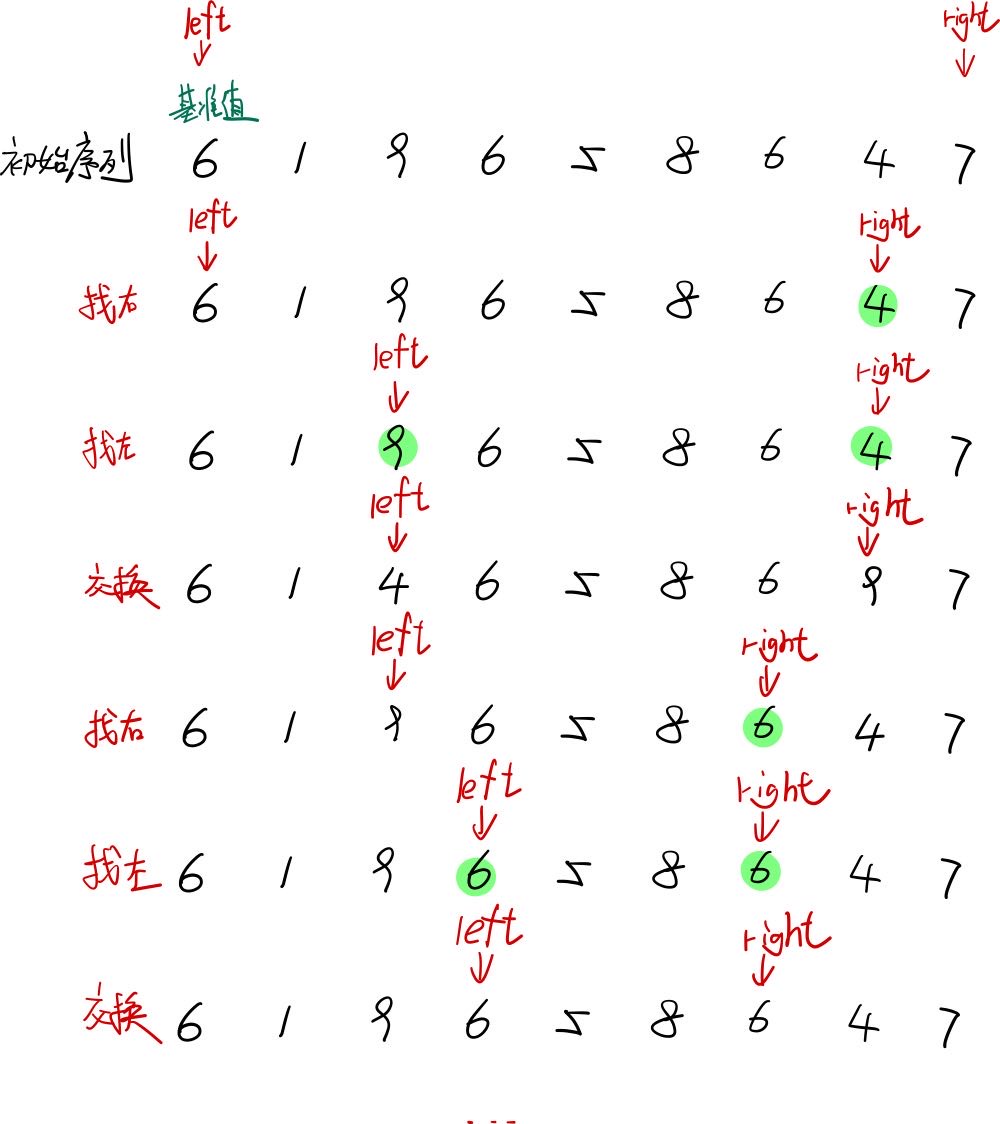 left right
基准值
初始序列 6 1 9 6 5 8 6 4 7
left right
找右 6 1 9 6 5 8 6 4 7
left right
找左 6 1 9 6 5 8 6 4 7
left right
交换 6 1 4 6 5 8 6 9 7
left right
找右 6 1 9 6 5 8 6 4 7
left right
找左 6 1 9 6 5 8 6 4 7
left right
交换 6 1 9 6 5 8 6 4 7
...